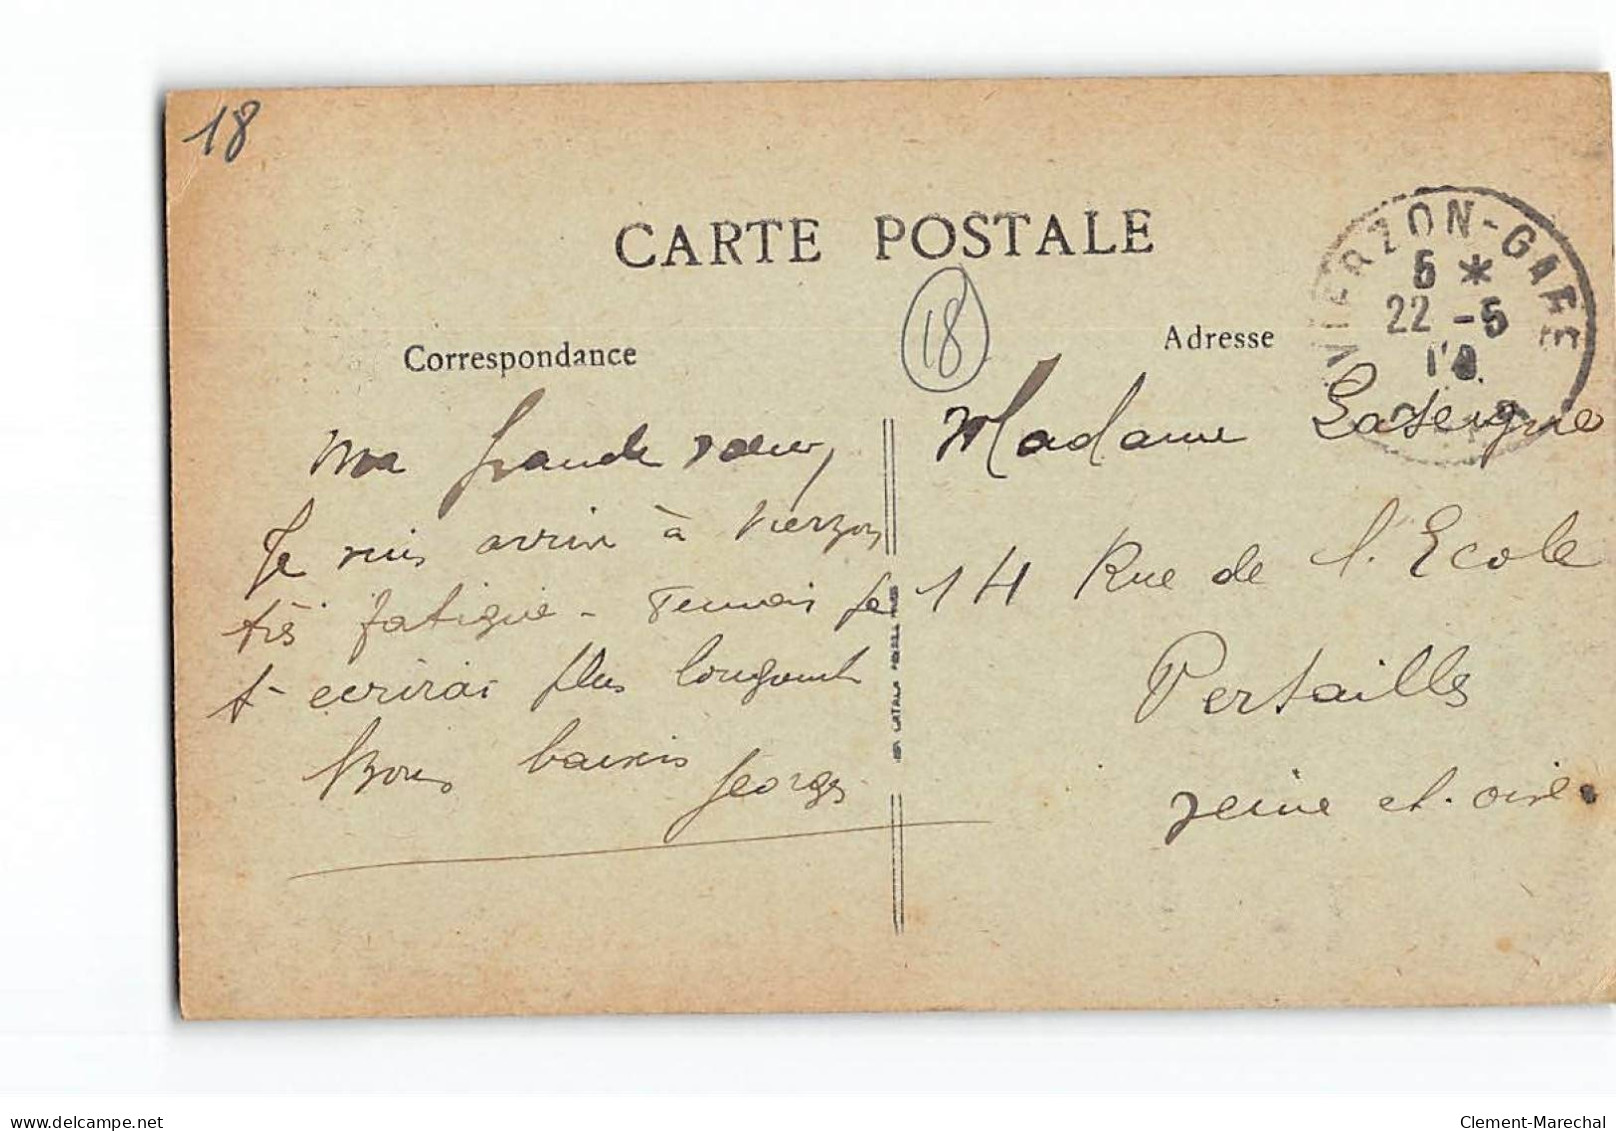 18
CARTE POSTALE
VIERZON-GARE
5 *
22 -5
18
Correspondance
Adresse
Ma grande sœur,
Je suis arrivé à Vierzon
très fatigué - Demain je
t'écrirai plus longuement
Bons baisers
Georges
Madame
14 Rue de l'Ecole
Versailles
Seine et. oise.
delcampe.net
Clement-Marechal